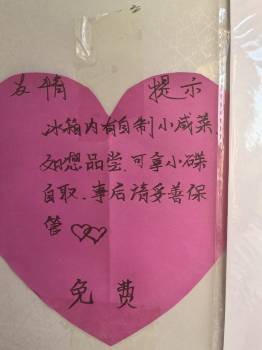 友情 提示
冰箱内有自制小咸菜
如想品尝.可拿小碟
自取.事后请妥善保
管
免费